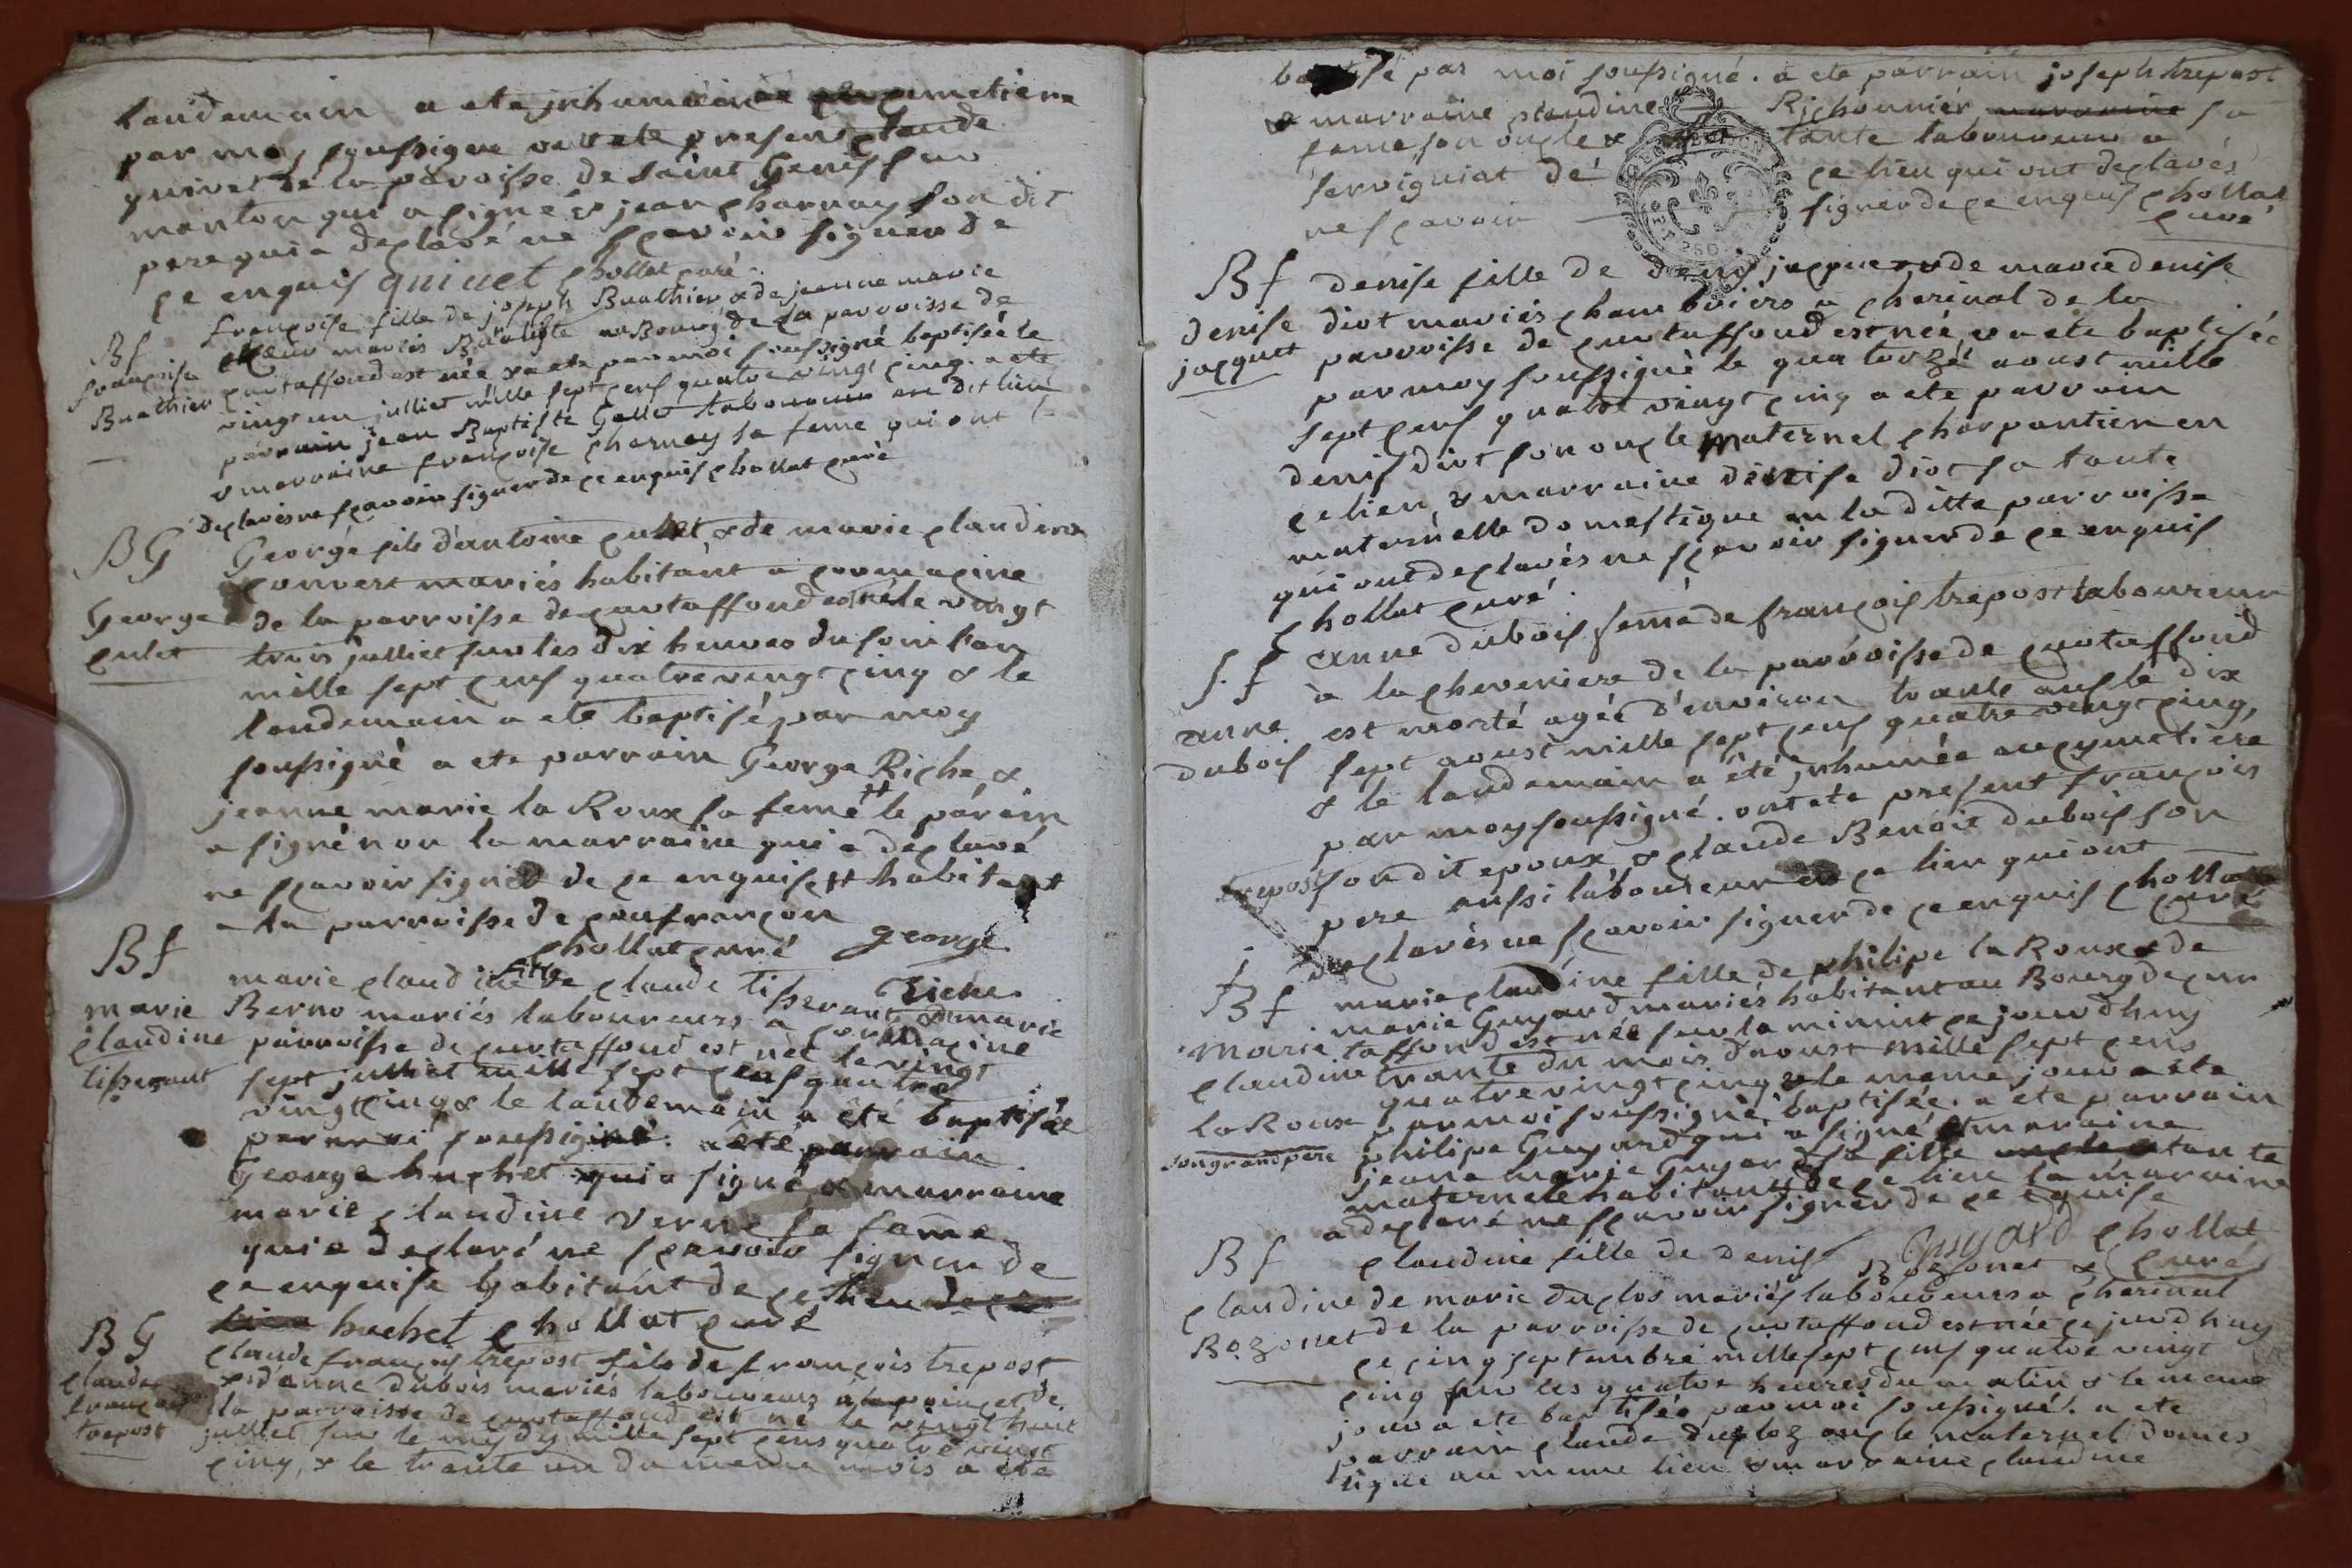 landemain a ete jnhumée au cimetiere
par moy soussigné ont ete presens claude
quivet de la paroisse de saint Genis sur
manton qui a signé & jean charnay son dit
pere qui a declaré ne sçavoir signer de
ce enquis quiuet chollat curé
Bf françoise fille de joseph Buathier & de jeanne marie
françoise mariés au Bourg de la parroisse de
Buathier curtaffond est née & a ete par moi soussigné baptisée le
vingt un julliet mille sept cens quatre vingt cinq. a ete
parrain jean Baptiste Gallet laboureur au dit lieu
& marraine françoise charnay sa feme qui ont
declarés ne sçavoir signer de ce enquis chollat curé
BG George fils d'antoine culet & de marie claudine
convert mariés habitant a cormacine
George de la parroisse de curtaffond est né le vingt
culet trois julliet sur les dix heures du soir l'an
mille sept cens quatre vingt cinq & le
landemain a ete baptisé par moy
soussigné a ete parrain George Riche &
jeanne marie la Roux sa femé ++ le parein
a signé non la marraine qui a declaré
ne sçavoir signer de ce enquise ++ habitant
la parroisse de confrançon
chollat curé George
Bf marie claudine fille de claude tisserant & de marie Riche
marie Berno mariés laboureurs a cormacine
claudine parroisse de curtaffond est née le vingt
tisserant sept julliet mille sept cens quatre
vingt cinq & le landemain a été baptisée
par moi soussigné. a été parrain
George huchet qui a signé & marraine
marie claudine verne sa fame
qui a declaré ne sçavoir signer de
ce enquise habitant de ce lieu de ce
lieu huchet chollat curé
BG claude françois trepost fils de françois trepost
claude & d'anne dubois mariés laboureurs a la poincet de
françois la parroisse de curtaffond est né le vingt huit
trepost julliet sur le my dy mille sept cens quatre vingt
cinq, & le trante un du meme mois a été
baptisé par moi soussigné. a ete parrain joseph trepost
& marraine claudine Richonnier marraine sa
feme son oncle & tante laboureurs a
servigniat de ce lieu qui ont declarés
ne sçavoir signer de ce enquis chollat
curé
Bf denise fille de denis jacquet & de marie denise
denise diot mariés chambriers a cherinal de la
jacquet parroisse de curtaffond est née & a ete baptisée
par moy soussigné le quatorze aoust mille
sept cens quatre vingt cinq a ete parrain
denis diot son oncle maternel charpantier en
ce lieu, & marraine denise diot sa tante
maternelle domestique en la ditte parroisse
qui ont declarés ne sçavoir signer de ce enquis
chollat curé.
S.f anne dubois femé de françois trepost laboureur
à la cheveniere de la parroisse de curtaffond
anne est morté agée d'environ trante ans le dix
dubois sept aoust mille sept cens quatre vingt cinq,
& le landemain a été jnhumée au cymetiere
par moy soussigné. ont ete present françois
trepost son dit epoux & claude Benoit dubois son
pere aussi laboureur en ce lieu qui ont
declarés ne sçavoir signer de ce enquis chollat
curé
Bf marie claudine fille de philipe la Roux & de
marie Guyard mariés habitant au Bourg de cur
Marie taffond est née sur la minuit ce jourd huy
claudine trante du mois d'aoust mille sept cens
la Roux quatre vingt cinq & le meme jour a ete
par moi soussigné baptisée. a ete parrain
son grand pere philipe Guyard qui a signé et maraine
jeane marie Guyard sa fille oncle & tante
maternele habitants de ce lieu la maraine
a declaré ne sçavoir signer de ce equise
Guyard chollat
Bf claudine fille de denis Bozonet & curé
claudine de marie duclos mariés laboureurs a cherinal
Bozonet de la parroisse de curtaffond est née ce jourd huy
ce cinq septambre mille sept cens quatre vingt
cinq sur les quatre heures du matin & le meme
jour a ete baptisée par moi soussigné. a ete
parrain claude ducloz oncle maternel domes
tique au meme lieu & marraine claudine